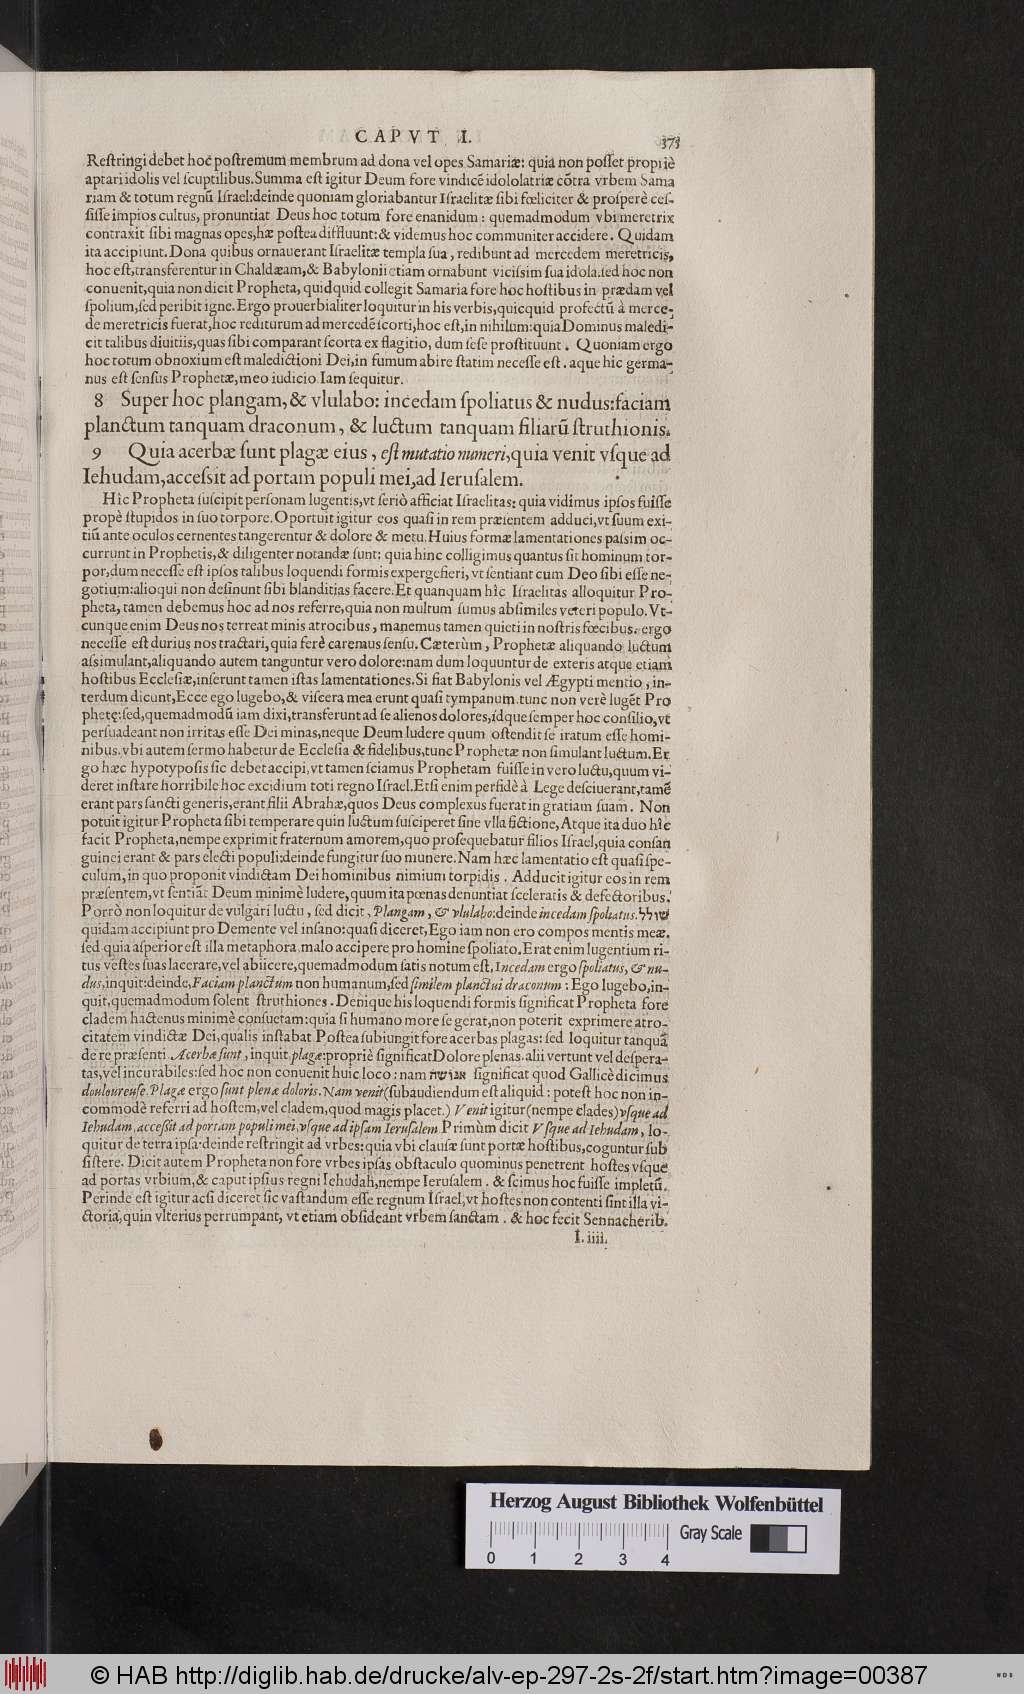 CAPVT I. 373
Reſtringi debet hoc poſtremum membrum ad dona vel opes Samariæ: quia non poſſet propriè
aptari idolis vel ſculptilibus. Summa eſt igitur Deum fore vindicē idololatriæ cōtra vrbem Sama
riam & totum regnū Iſrael: deinde quoniam gloriabantur Iſraelitæ ſibi fœliciter & proſperè ceſ-
ſiſſe impios cultus, pronuntiat Deus hoc totum fore enanidum: quemadmodum vbi meretrix
contraxit ſibi magnas opes, hæ poſtea diffluunt: & videmus hoc communiter accidere. Quidam
ita accipiunt. Dona quibus ornauerant Iſraelitæ templa ſua, redibunt ad mercedem meretricis,
hoc eſt, transferentur in Chaldæam, & Babylonii etiam ornabunt viciſsim ſua idola. ſed hoc non
conuenit, quia non dicit Propheta, quidquid collegit Samaria fore hoc hoſtibus in prædam vel
ſpolium, ſed peribit igne. Ergo prouerbialiter loquitur in his verbis, quicquid profectū à merce-
de meretricis fuerat, hoc rediturum ad mercedē ſcorti, hoc eſt, in nihilum: quia Dominus maledi-
cit talibus diuitiis, quas ſibi comparant ſcorta ex flagitio, dum ſeſe proſtituunt. Quoniam ergo
hoc totum obnoxium eſt maledictioni Dei, in fumum abire ſtatim neceſſe eſt. aque hic germa-
nus eſt ſenſus Prophetæ, meo iudicio. Iam ſequitur.
8 Super hoc plangam, & vlulabo: incedam ſpoliatus & nudus: faciam
planctum tanquam draconum, & luctum tanquam filiarū ſtruthionis.
9 Quia acerbæ ſunt plagæ eius, eſt mutatio numeri, quia venit vſque ad
Iehudam, acceſsit ad portam populi mei, ad Ieruſalem.
Hîc Propheta ſuſcipit perſonam lugentis, vt ſeriò afficiat Iſraelitas: quia vidimus ipſos fuiſſe
propè ſtupidos in ſuo torpore. Oportuit igitur eos quaſi in rem præſentem adduci, vt ſuum exi-
tiū ante oculos cernentes tangerentur & dolore & metu. Huius formæ lamentationes paſsim oc-
currunt in Prophetis, & diligenter notandæ ſunt: quia hinc colligimus quantus ſit hominum tor-
por, dum neceſſe eſt ipſos talibus loquendi formis expergefieri, vt ſentiant cum Deo ſibi eſſe ne-
gotium: alioqui non deſinunt ſibi blanditias facere. Et quanquam hîc Iſraelitas alloquitur Pro-
pheta, tamen debemus hoc ad nos referre, quia non multum ſumus abſimiles veteri populo. Vt-
cunque enim Deus nos terreat minis atrocibus, manemus tamen quieti in noſtris fœcibus. ergo
neceſſe eſt durius nos tractari, quia ferè caremus ſenſu. Cæterùm, Prophetæ aliquando luctum
aſsimulant, aliquando autem tanguntur vero dolore: nam dum loquuntur de exteris atque etiam
hoſtibus Eccleſiæ, inſerunt tamen iſtas lamentationes. Si fiat Babylonis vel Ægypti mentio, in-
terdum dicunt, Ecce ego lugebo, & viſcera mea erunt quaſi tympanum. tunc non verè lugēt Pro
phetę: ſed, quemadmodū iam dixi, transferunt ad ſe alienos dolores, idque ſemper hoc conſilio, vt
perſuadeant non irritas eſſe Dei minas, neque Deum ludere quum oſtendit ſe iratum eſſe homi-
nibus. vbi autem ſermo habetur de Eccleſia & fidelibus, tunc Prophetæ non ſimulant luctum. Er
go hæc hypotypoſis ſic debet accipi, vt tamen ſciamus Prophetam fuiſſe in vero luctu, quum vi-
deret inſtare horribile hoc excidium toti regno Iſrael. Etſi enim perfidè à Lege deſciuerant, tamē
erant pars ſancti generis, erant filii Abrahæ, quos Deus complexus fuerat in gratiam ſuam. Non
potuit igitur Propheta ſibi temperare quin luctum ſuſciperet ſine vlla fictione, Atque ita duo hîc
facit Propheta, nempe exprimit fraternum amorem, quo proſequebatur filios Iſrael, quia conſan
guinei erant & pars electi populi: deinde fungitur ſuo munere. Nam hæc lamentatio eſt quaſi ſpe-
culum, in quo proponit vindictam Dei hominibus nimium torpidis. Adducit igitur eos in rem
præſentem, vt ſentiāt Deum minimè ludere, quum ita pœnas denuntiat ſceleratis & defectoribus.
Porrò non loquitur de vulgari luctu, ſed dicit, Plangam, & vlulabo: deinde incedam ſpoliatus. שולל
quidam accipiunt pro Demente vel inſano: quaſi diceret, Ego iam non ero compos mentis meæ.
ſed quia aſperior eſt illa metaphora, malo accipere pro homine ſpoliato. Erat enim lugentium ri-
tus veſtes ſuas lacerare, vel abiicere, quemadmodum ſatis notum eſt, Incedam ergo ſpoliatus, & nu-
dus, inquit: deinde, Faciam planctum non humanum, ſed ſimilem planctui draconum: Ego lugebo, in-
quit, quemadmodum ſolent ſtruthiones. Denique his loquendi formis ſignificat Propheta fore
cladem hactenus minimè conſuetam: quia ſi humano more ſe gerat, non poterit exprimere atro-
citatem vindictæ Dei, qualis inſtabat. Poſtea ſubiungit fore acerbas plagas: ſed loquitur tanquā
de re præſenti. Acerbæ ſunt, inquit, plagæ: propriè ſignificat Dolore plenas. alii vertunt vel deſpera-
tas, vel incurabiles: ſed hoc non conuenit huic loco: nam אנושה ſignificat quod Gallicè dicimus
douloureuſe. Plagæ ergo ſunt plenæ doloris. Nam venit (ſubaudiendum eſt aliquid: poteſt hoc non in-
commodè referri ad hoſtem, vel cladem, quod magis placet.) Venit igitur (nempe clades) vſque ad
Iehudam, acceſsit ad portam populi mei, vſque ad ipſam Ieruſalem. Primùm dicit Vſque ad Iehudam, lo-
quitur de terra ipſa: deinde reſtringit ad vrbes: quia vbi clauſæ ſunt portæ hoſtibus, coguntur ſub
ſiſtere. Dicit autem Propheta non fore vrbes ipſas obſtaculo quominus penetrent hoſtes vſque
ad portas vrbium, & caput ipſius regni Iehudah, nempe Ieruſalem. & ſcimus hoc fuiſſe impletū.
Perinde eſt igitur acſi diceret ſic vaſtandum eſſe regnum Iſrael, vt hoſtes non contenti ſint illa vi-
ctoria, quin vlterius perrumpant, vt etiam obſideant vrbem ſanctam. & hoc fecit Sennacherib.
I.iiii.
Herzog August Bibliothek Wolfenbüttel
Gray Scale
0 1 2 3 4
© HAB http://diglib.hab.de/drucke/alv-ep-297-2s-2f/start.htm?image=00387